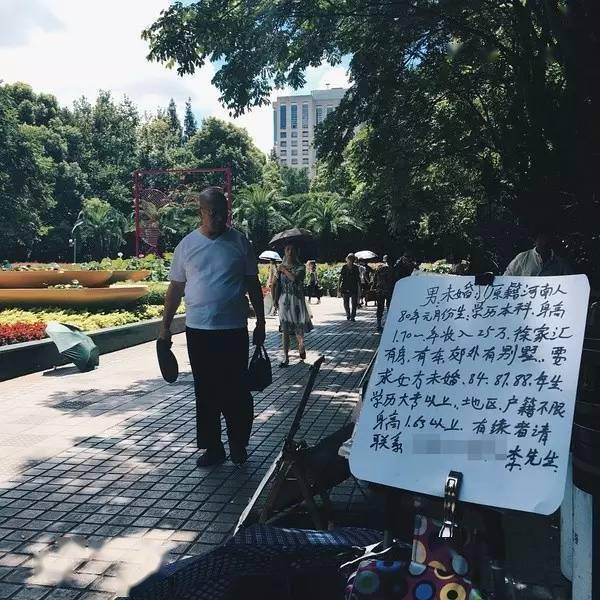 男未婚 原籍河南人
80年元月份生,学历本科,身高
1.70一年收入25万,徐家汇
有房,有车郊外有别墅,要
求女方未婚.84.87.88.年生
学历大专以上,地区、户籍不限
身高1.65以上,有缘者请
联系
李先生